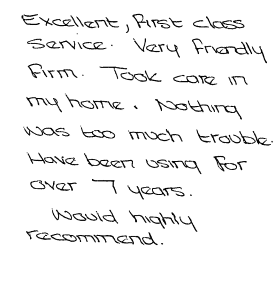 Excellent, first class
service. Very friendly
firm. Took care in
my home. Nothing
was too much trouble.
Have been using for
over 7 years.
Would highly
recommend.